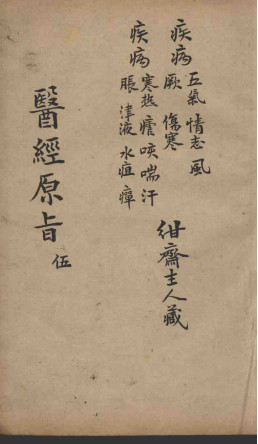 疾病 五氣 情志 風
厥 傷寒
疾病 寒熱 瘧 咳 喘 汗
脹 津液 水 疽 瘴
紺齋主人藏
醫經原旨 伍